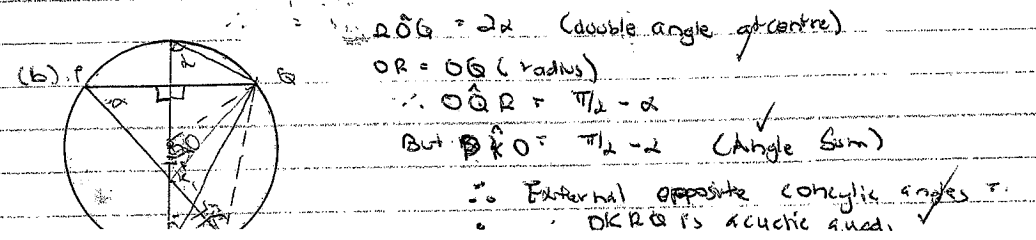 ∴ = RÔQ = 2α (double angle at centre)
(b). P α Q
α
OR = OQ (radius)
∴ OQ̂R = π/2 - α
But PK̂O = π/2 - α (Angle Sum)
∴ External opposite concylic angles =.
∴ OKRQ is acyclic quad.